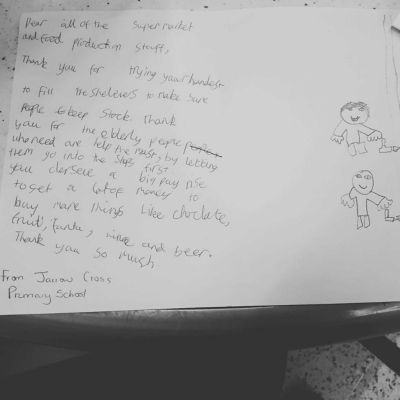 Dear all of the supermarket
and food production staff,
Thank you for trying your hardest
to fill the shelevers to make sure
People keep stock. Thank
you for the elderly people
who need are help the most, by letting
them go into the shops first
you derserve a big pay rise
to get a lot of money to
buy more things like choclate,
fruit, fanta, wine and beer.
Thank you so much
From Jarrow Cross
Primary School